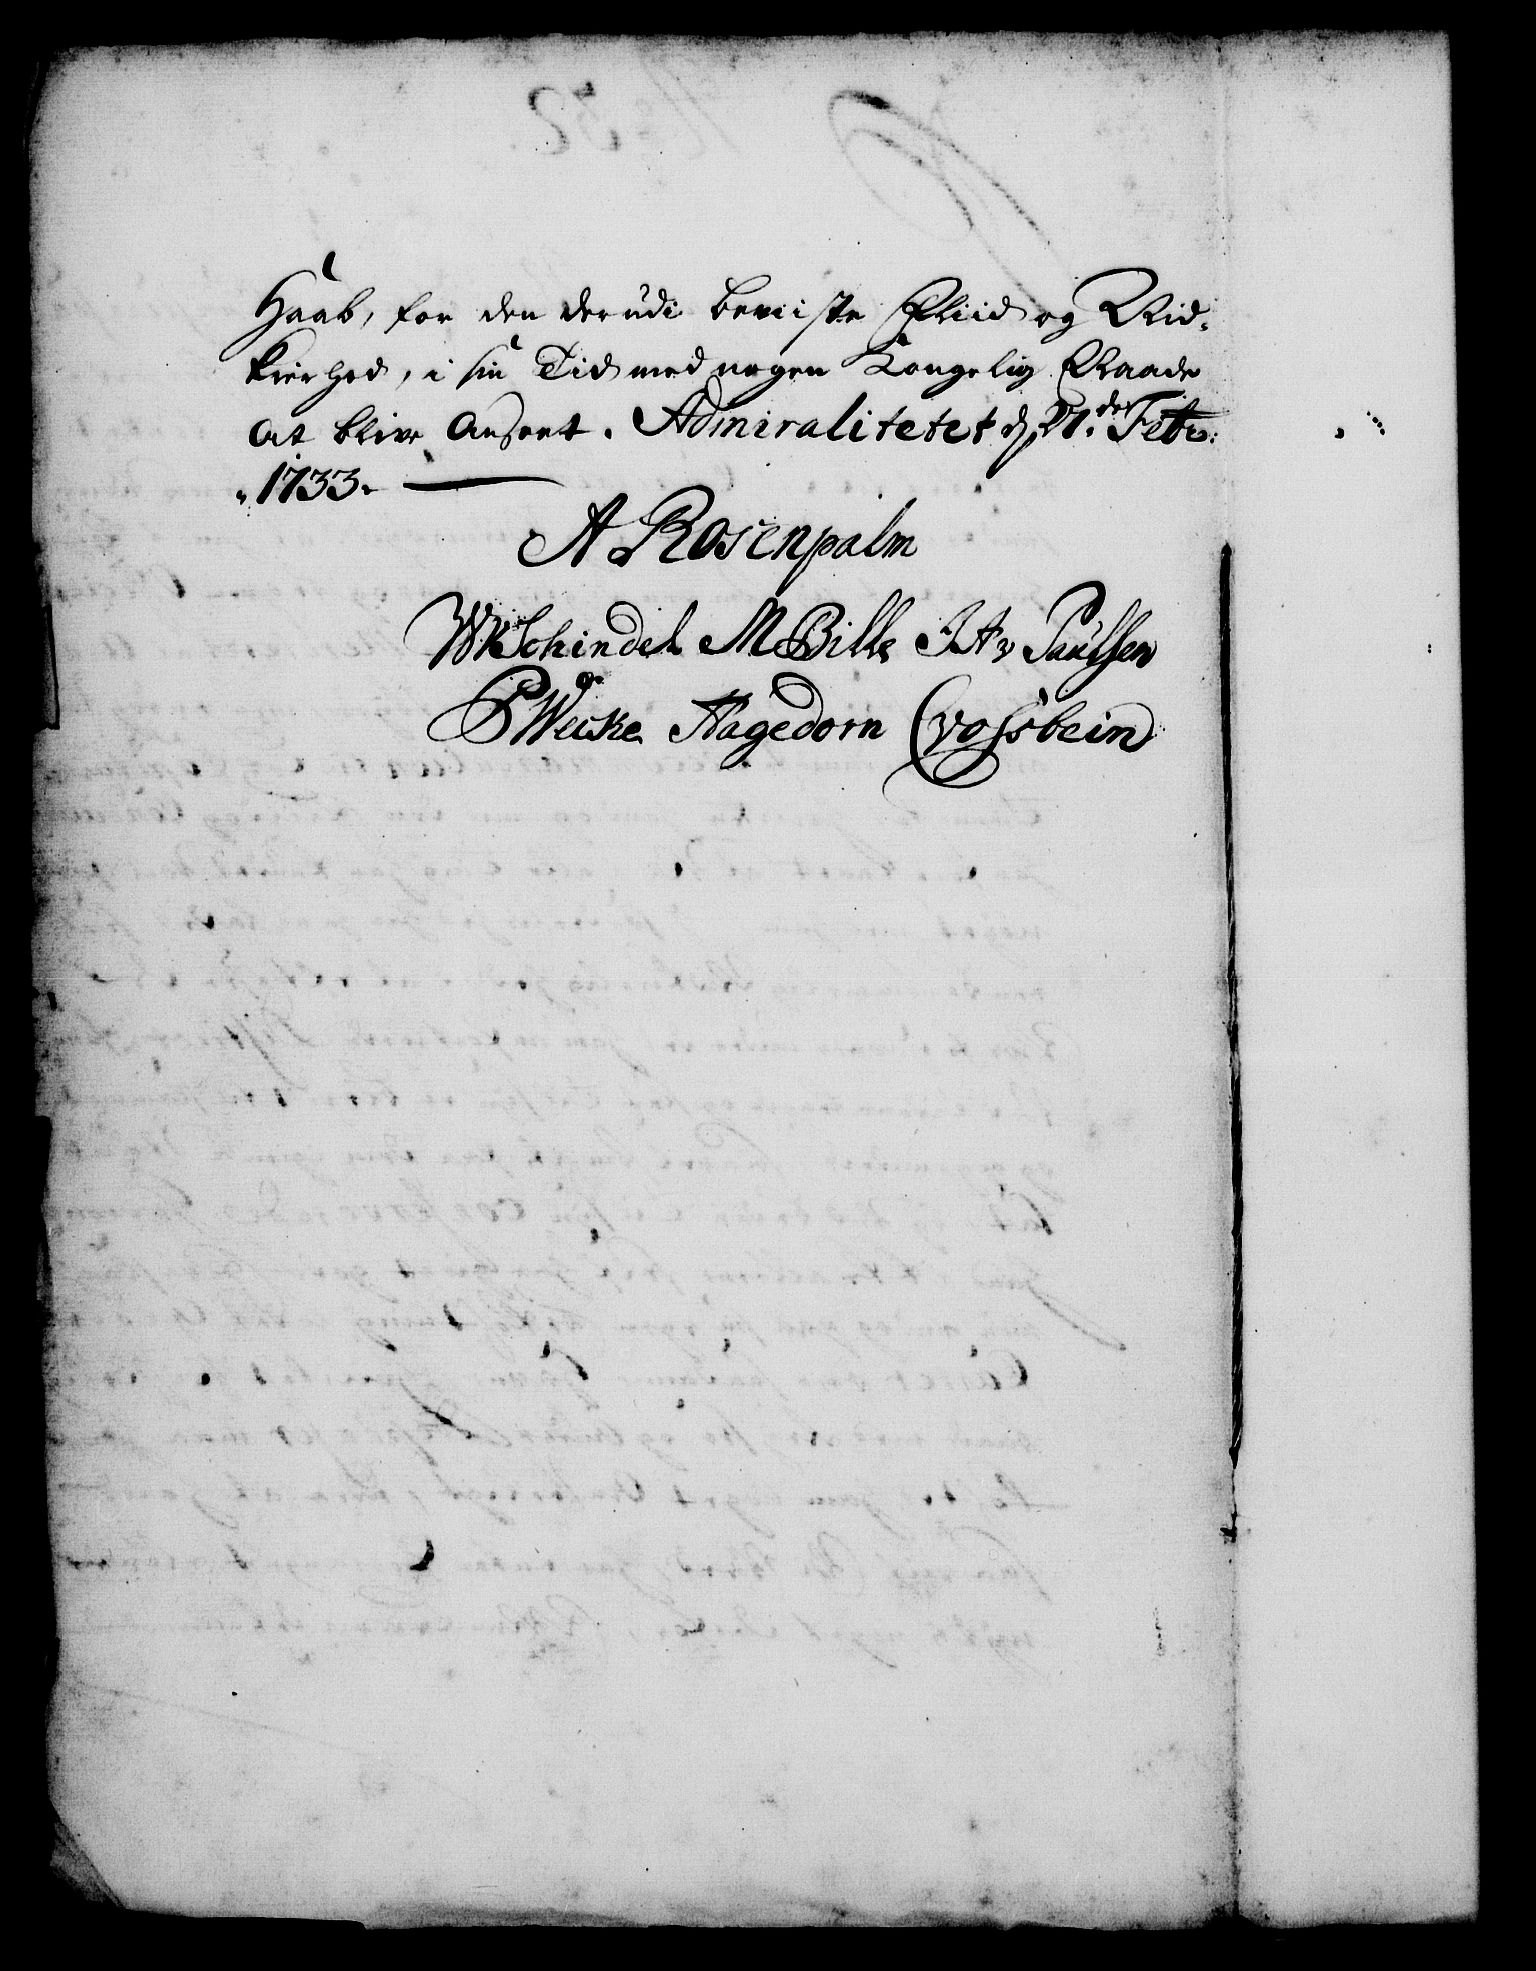 Haab, for den derudi beviiste Fliid og Vid-
kierhed, i sin Tid med nogen Kongelig Naade
at blive Anseet. Admiralitetet d. 21.de Febr:
1733.
A Rosenpalm
WvSchindel M Bille J A v Paulsen
P Weyke Hagedorn C vossbein